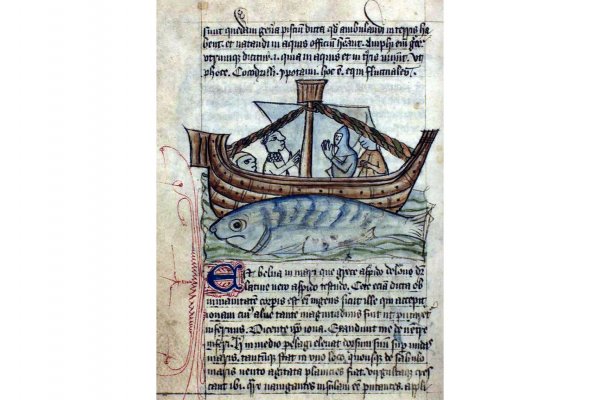 sunt quedam gen̄a pisciū dicta qd ambulandi in terris ha
bent. et natandi in aquis officiū hn̄ant. Amphi em̄ gͬce
utrumque dicitur .i. quia in aquis et in tr̄is uiuūt. ut
phoce. Cocodrilli. ypotami. hoc ē. equi fluctuales.
Est belua in mari que grece aspido delone dr̄
latine uero aspido testudo. Cete eciā dicta ob
immanitatem corꝑis est eī ingens sicut ille qui accepit
ionam cuiꝰ alus tante magnitudinis fuit ut putaret
infernus. Dicente ipō iona. Exaudiuit me de uentre
inferi. H̄ in medio pelagi eleuat dorsum suū suꝑ undas
maris. tantumque stat in uno loco. quousque de sabulo
maris uento agitata planicies fiat. uirgultaque cres
cant ibi. nauigantes insulam eē putantes. appli